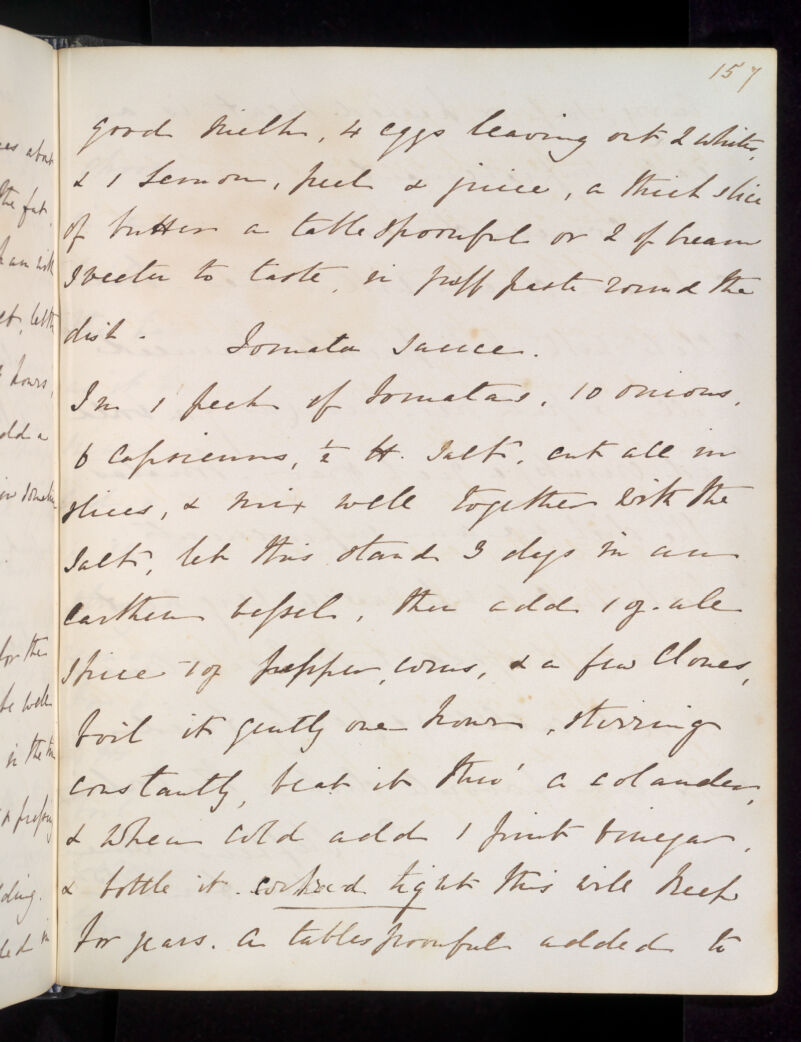 157
good milk, 4 eggs leaving out 2 whites,
& 1 Lemon, peel & juice, a thick slice
of butter a tablespoonful or 2 of cream
Sweeten to taste, in puff paste round the
dish.
Tomata Sauce.
In 1 peck of Tomatas, 10 onions,
6 Capsicums, ½ lb. Salt, cut all in
slices, & mix well together with the
Salt, let this stand 3 days in an
earthen vessel, then add 1 oz. ale
spice 1 oz pepper, corns, & a few Cloves,
boil it gently one hour, stirring
constantly, beat it thro' a colander,
& when cold add 1 pint vinegar,
& bottle it. corked tight this will keep
for years. A tablespoonful added to
es about
the fat,
hours,
add a
for the
be well
in the